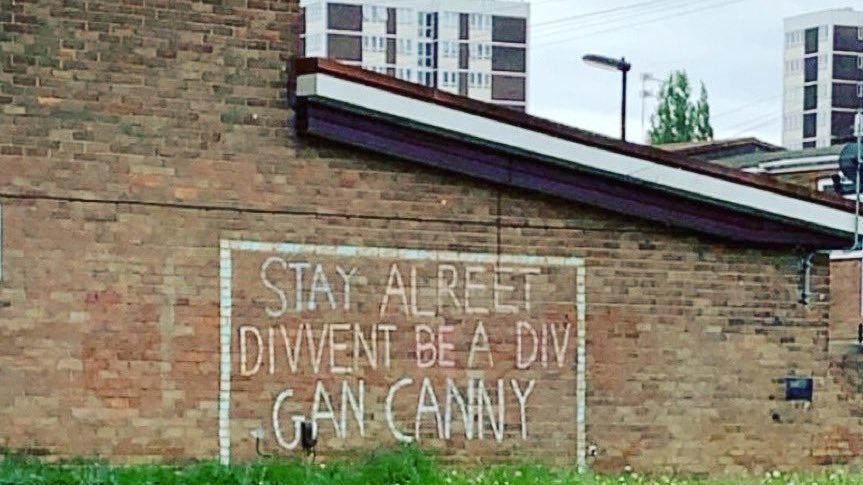 STAY ALREET
DIVVENT BE A DIV
GAN CANNY